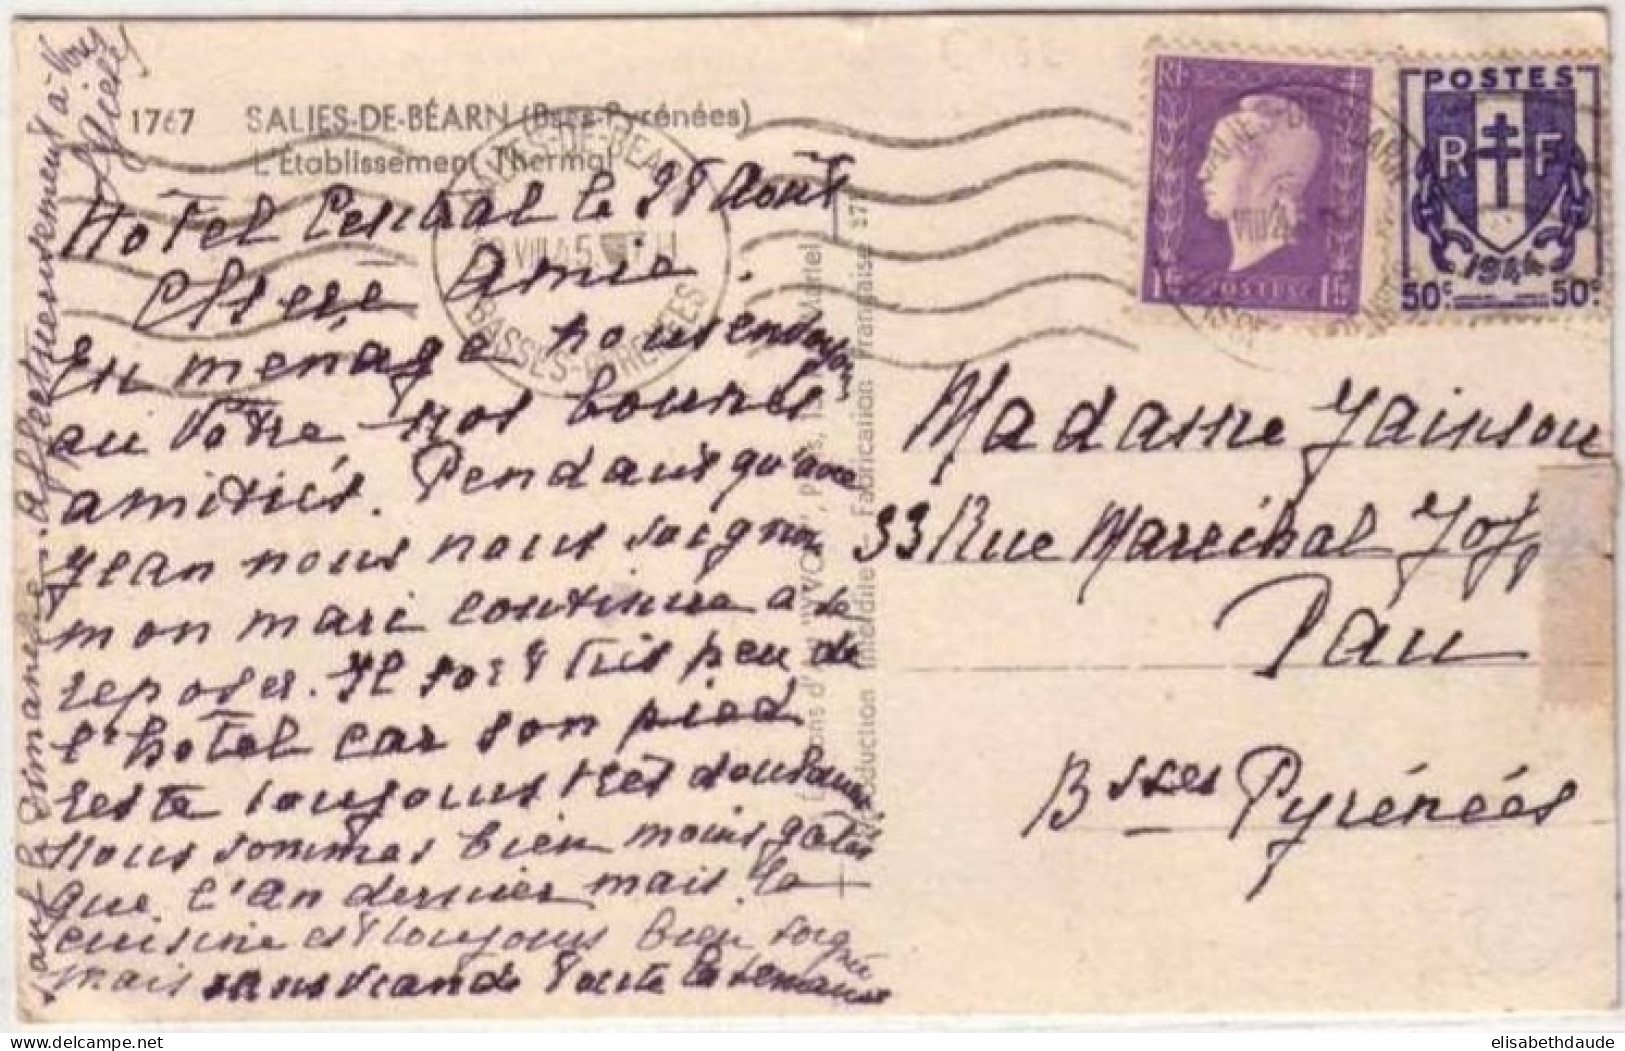 1767 SALIES-DE-BÉARN (Bses-Pyrénées)
L'Établissement Thermal
Hôtel Central le 28 Août
Chère Amie.
En ménage nous envoyons
au Vôtre nos bonnes
amitiés. Pendant qu'avec
Jean nous nous soignons
mon mari continue à se
reposer. Il sort très peu de
l'hôtel car son pied
reste toujours très douloureux
Nous sommes bien moins gâtés
que l'an dernier mais la
cuisine est toujours bien soignée
mais sans viande toute la semaine
sauf le Dimanche. affectueusement à vous
SALIES-DE-BÉARN
VIII 45
BASSES-PYRÉNÉES
RF
1F POSTES 1F
POSTES
RF
1944
50c 50c
Madame Jainson
33 Rue Maréchal Joffre
Pau
Bsses Pyrénées
Reproduction Interdite - Fabrication Française
elisabethdaude